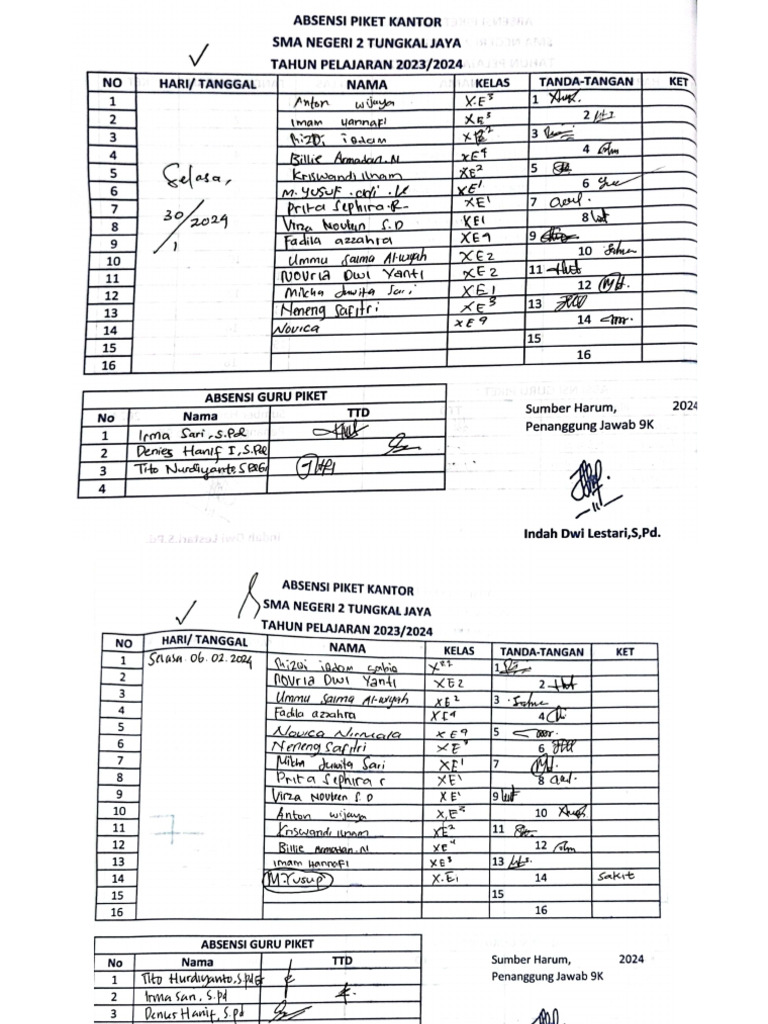 ABSENSI PIKET KANTOR
SMA NEGERI 2 TUNGKAL JAYA
TAHUN PELAJARAN 2023/2024
NO HARI/ TANGGAL NAMA KELAS TANDA-TANGAN KET
Selasa, 30/1 2024
1 Anton wijaya X.E3 1
2 Imam Hannafi XE3 2
3 Rizqi iqdam XE2 3
4 Billie Armadan.N XE4 4
5 Kriswandi ilham XE2 5
6 M. YUSUF XE1 6
7 Prita Sephira.R XE1 7
8 Virza Novleen S.D XE1 8
9 Fadila azzahra XE4 9
10 Ummu Saima Al-wiyah XE2 10
11 NOVRIA DWI YANTI XE2 11
12 Milcha Juwita Sari XE1 12
13 Neneng Safitri XE3 13
14 Novica XE4 14
15 15
16 16
ABSENSI GURU PIKET
No Nama TTD
1 Irma Sari, S.Pd
2 Denies Hanif I, S.Pd
3 Tito Nurdiyanto, S.Pd.Gr
4
Sumber Harum, 2024
Penanggung Jawab 9K
Indah Dwi Lestari,S,Pd.
ABSENSI PIKET KANTOR
SMA NEGERI 2 TUNGKAL JAYA
TAHUN PELAJARAN 2023/2024
NO HARI/ TANGGAL NAMA KELAS TANDA-TANGAN KET
Selasa 06.02.2024
1 Rizqi iqdam 1
2 NOVRIA DWI YANTI XE2 2
3 Ummu Saima Al-wiyah XE2 3
4 Fadila azzahra XE4 4
5 Novica Nirmala XE4 5
6 Neneng Safitri XE3 6
7 Milcha Juwita Sari XE1 7
8 Prita Sephira r XE1 8
9 Virza Novleen S.D XE1 9
10 Anton wijaya X,E3 10
11 Kriswandi ilham XE2 11
12 Billie Armadan.N XE4 12
13 imam Hannafi XE3 13
14 M.Yusup X.E1 14 sakit
15 15
16 16
ABSENSI GURU PIKET
No Nama TTD
1 Tito Nurdiyanto, S.Pd.Gr
2 Irma Sari, S.Pd
3 Denies Hanif, S.Pd
Sumber Harum, 2024
Penanggung Jawab 9K